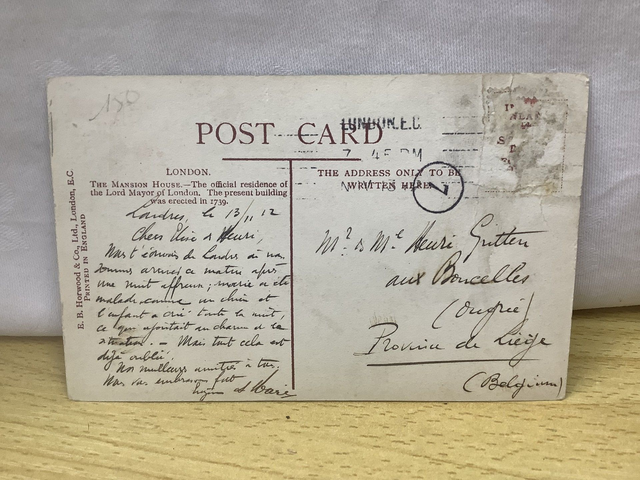 150
POST CARD
LONDON. E.C.
7. 45 PM
LONDON.
THE MANSION HOUSE.—The official residence of
the Lord Mayor of London. The present building
was erected in 1739.
THE ADDRESS ONLY TO BE
WRITTEN HERE
E. B. Horwood & Co., Ltd., London, E.C.
PRINTED IN ENGLAND
Londres, le 13/11 12
Chers Elise & Henri,
de Londres où nous
sommes arrivés ce matin après
une nuit affreuse; marie a été
malade comme un chien et
l'enfant a crié toute la nuit,
ce qui ajoutait au charme de la
situation. — Mais tout cela est
déjà oublié.
Nos meilleures amitiés à tous.
Nous vous embrassons fort
et Marie
Mr & Me Henri
aux Boncelles
(Ougrée)
Province de Liége
(Belgium)